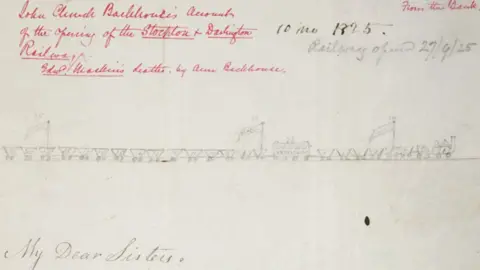 John Church Backhouse's Account
From the Bank.
of the opening of the Stockton & Darlington
10 mo 1825.
Railway.
Railway opened 27/9/25
Mother, by Ann Backhouse.
My Dear Sisters.